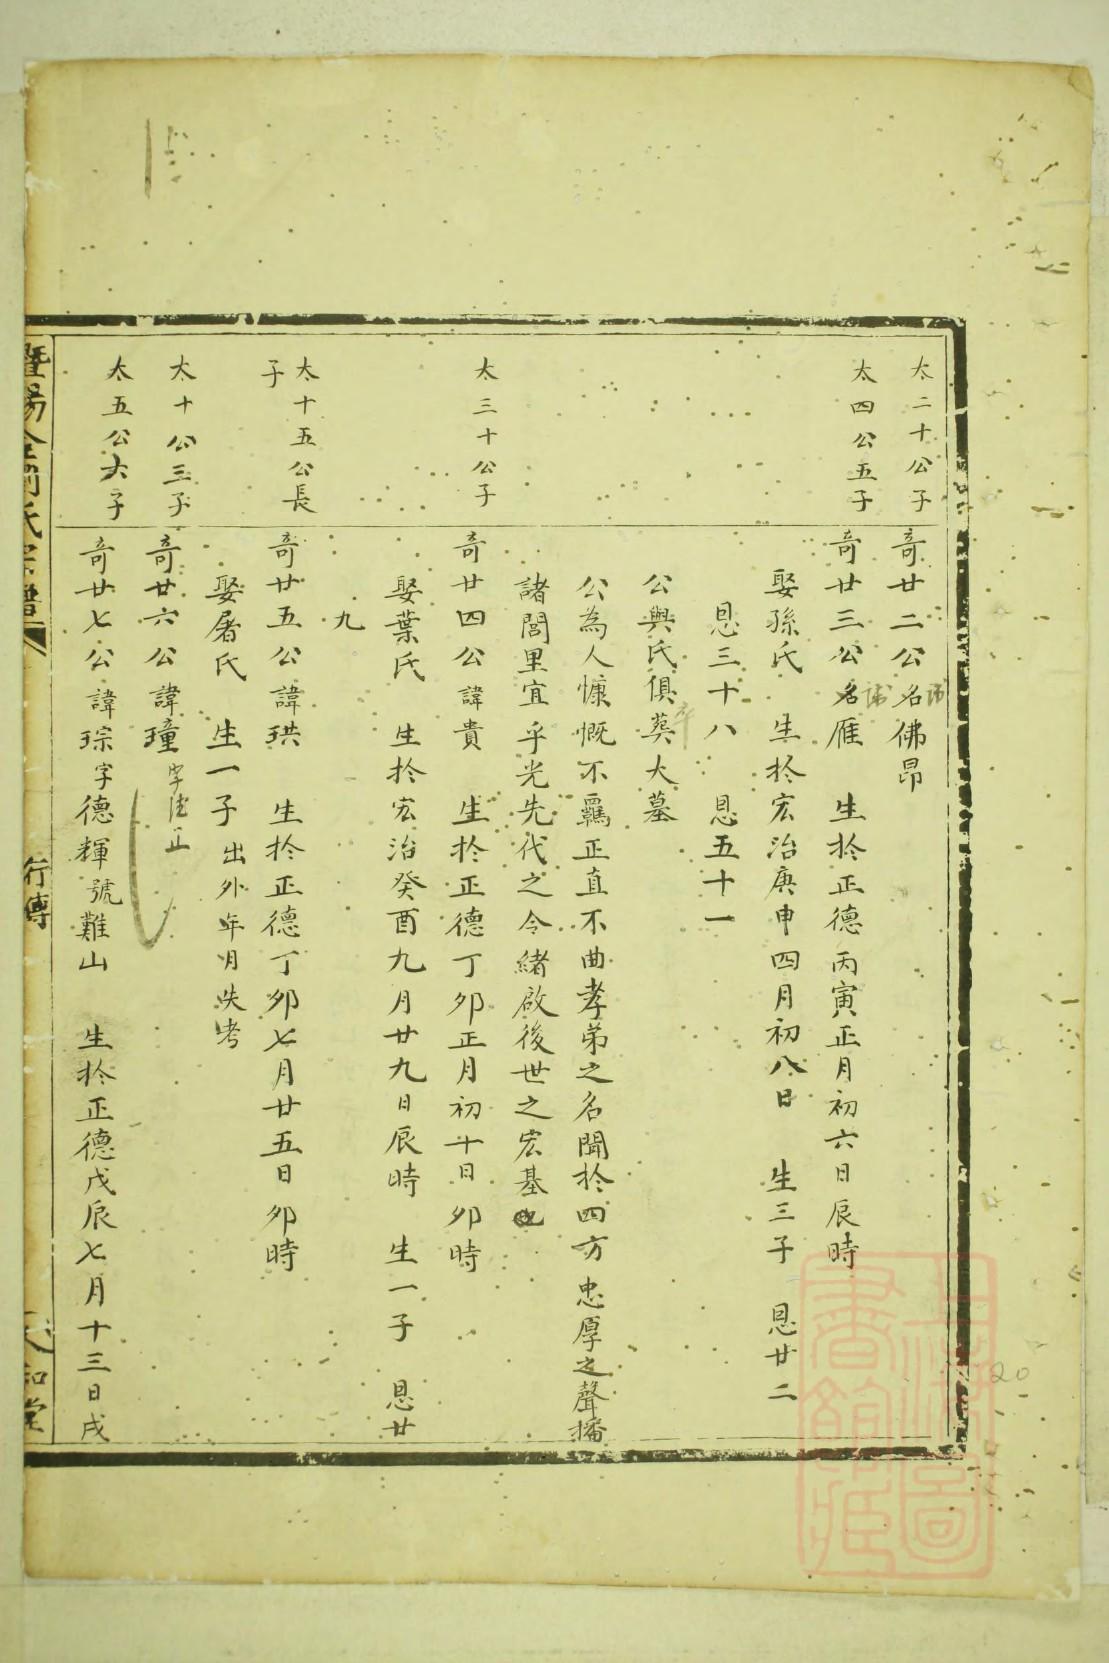 太二十公子
奇廿二公名佛昂
太四公五子
奇廿三公名雁 生於正德丙寅正月初六日辰時
娶孫氏 生於宏治庚申四月初八日 生三子 恩廿二
恩三十八 恩五十一
公與氏俱葬大墓
公為人慷慨不羈正直不曲孝弟之名聞於四方忠厚之聲播
諸閭里宜乎光先代之令緒啟後世之宏基也
太三十公子
奇廿四公諱貴 生於正德丁卯正月初十日卯時
娶葉氏 生於宏治癸酉九月廿九日辰時 生一子 恩廿
九
太十五公長
子
奇廿五公諱珙 生於正德丁卯七月廿五日卯時
娶屠氏 生一子出外年月失考
太十公三子
奇廿六公諱瑾字德正
太五公六子
奇廿七公諱琮字德輝號難山 生於正德戊辰七月十三日戌
暨陽 氏宗譜
行傳
和堂
上海圖
書館藏
20